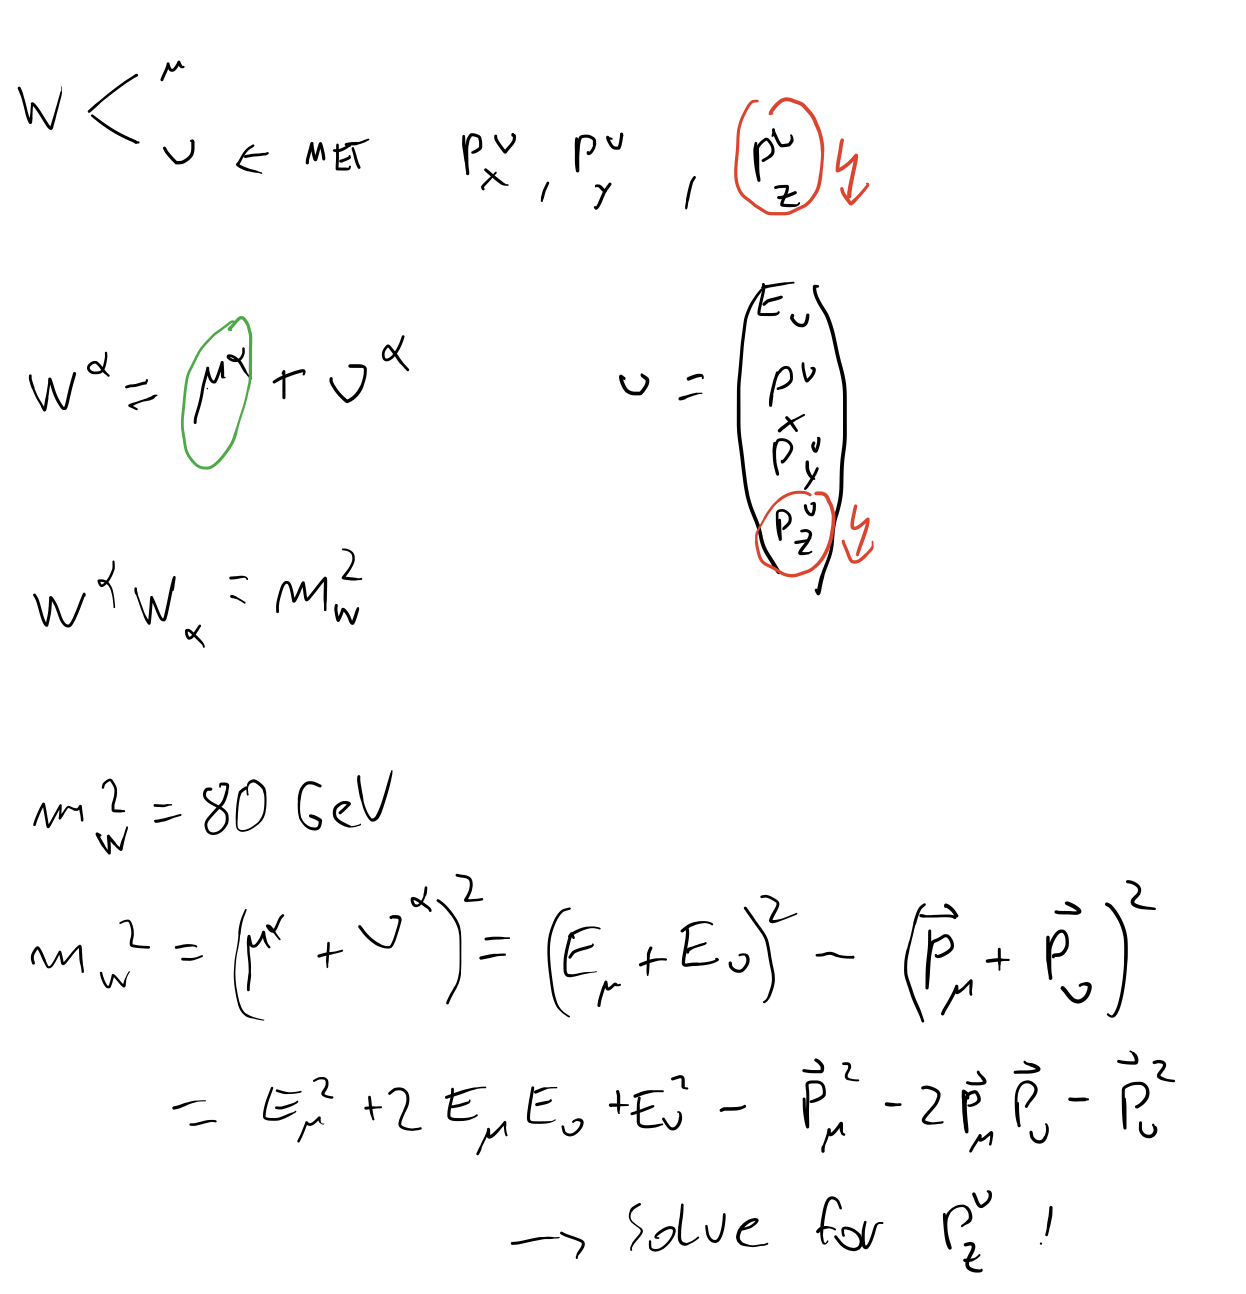 W < μ
ν ← MET p_x^ν , p_y^ν , p_z^ν
W^α = μ^α + ν^α
ν = ( E_ν p_x^ν p_y^ν p_z^ν )
W^α W_α = m_W^2
m_W^2 = 80 GeV
m_W^2 = (μ^α + ν^α)^2 = (E_μ + E_ν)^2 − (p⃗_μ + p⃗_ν)^2
= E_μ^2 + 2 E_μ E_ν + E_ν^2 − p⃗_μ^2 − 2 p⃗_μ p⃗_ν − p⃗_ν^2
→ solve for p_z^ν !